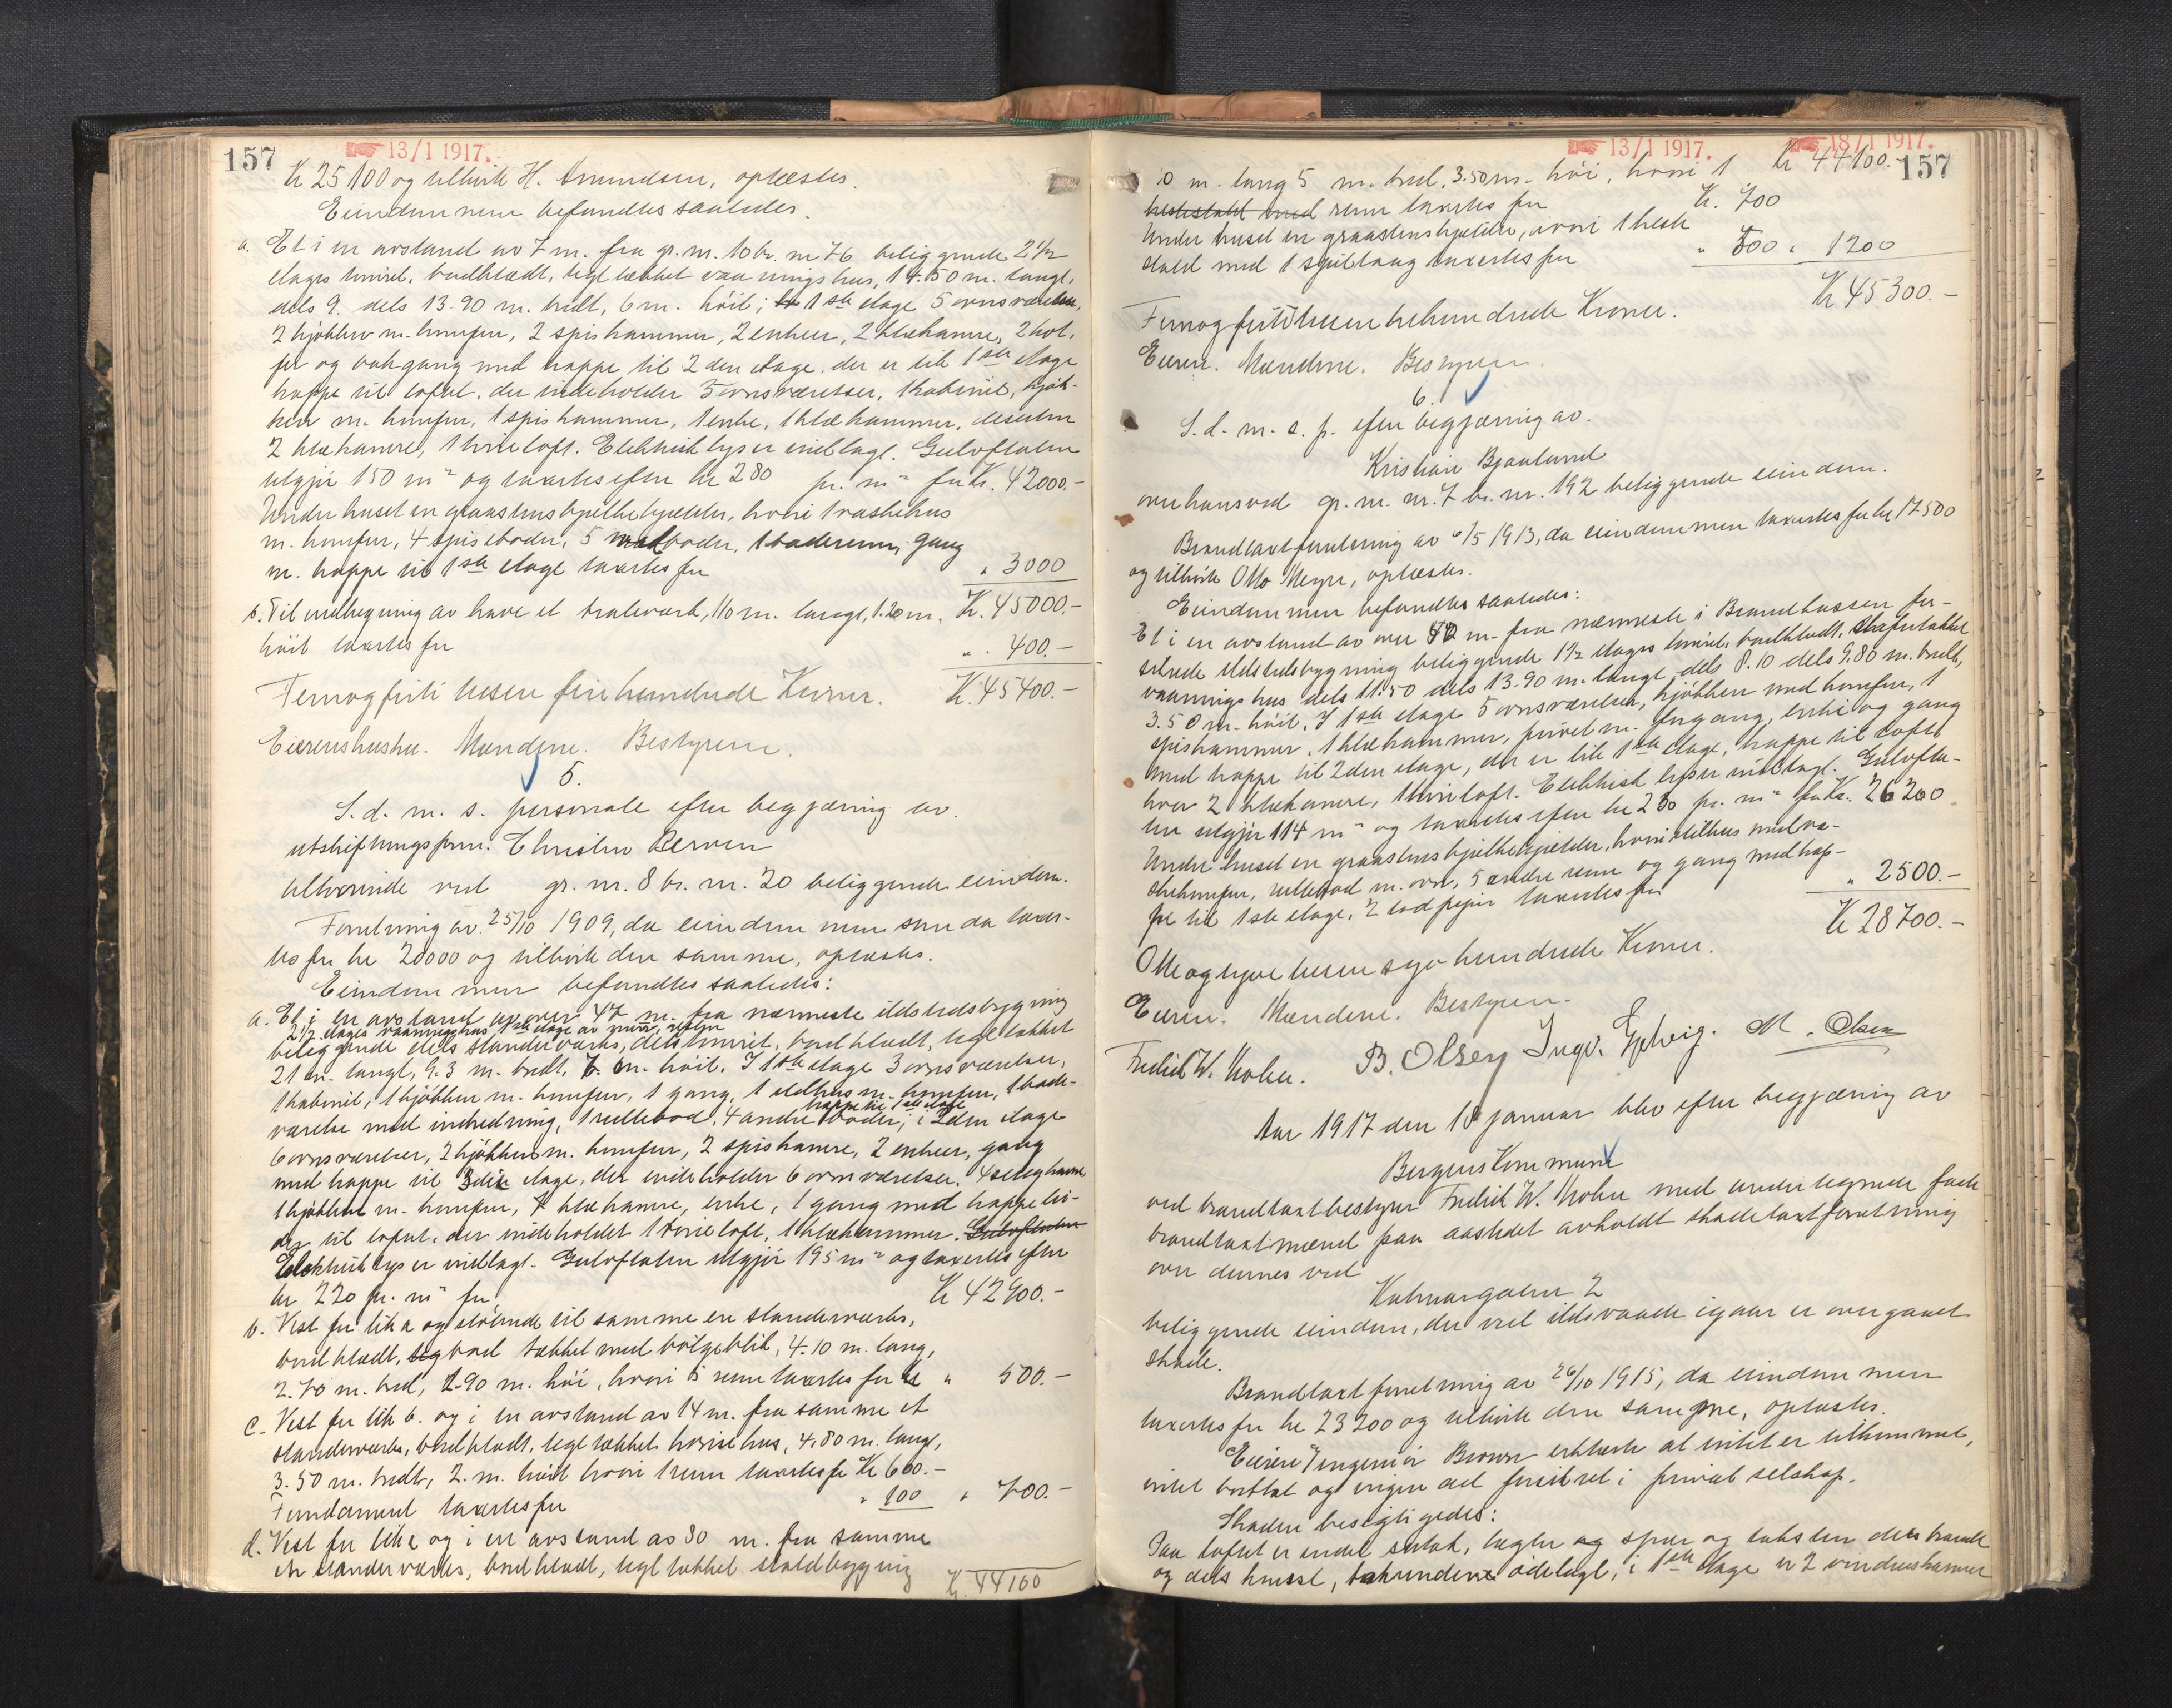 157
13/1 1917.
Kr 25100 og tilhørte H. Amundsen, oplæstes.
Eiendommen befandtes saaledes.
a. Et i en avstand av 7 m. fra gr. nr. 10 br. nr 76 beliggende 2 1/2
etages tømret, bordklædt, tegltækket vaaningshus, 14.50 m. langt,
dels 9. dels 13.90 m. bredt, 6 m. höit; 1ste etage 5 ovnsværelser,
2 kjøkken m. komfur, 2 spiskammer, 2 entreer, 2 klækamre, 2 kot.
per og bakgang med trappe til 2den etage, der er lik 1ste etage
trappe til loftet, der indeholder 3 ovnsværelser, 1 kabinet, kjøk-
ken m. komfur, 1 spiskammer, 1 entre, 1 klækammer, desuten
2 klækamre, 1 tørieloft. Elektrisk lys er indlagt. Gulvflaten
utgjør 150 m² og taxertes efter kr 280 pr. m² for Kr. 42000.-
Under huset en graastenshvælvkjelder, hvori 1 vaskehus
m. komfur, 4 spiseboder, 5 vedboder, 1 baderum, gang
m. trappe til 1ste etage taxertes for " 3000
b. Til indhegning av have et trælverk, 110 m. langt, 1.20 m. Kr. 45000.-
höit taxertes for " 400.-
Femogfirti tusen firehundrede Kroner. Kr. 45400.-
Eierens hustru. Mændene. Bestyreren.
5.
S. d. m. s. personale efter begjæring av
utskiftningsform. Christen Rerven
tilhørende ved gr. nr. 8 br. nr. 20 beliggende eiendom.
Forretning av 25/10 1909, da eiendommen som da taxer-
tes for kr 20000 og tilhørte den samme, oplæstes.
Eiendommen befandtes saaledes:
a. Et i en avstand av over 47 m. fra nærmeste ildstedsbygning
2 1/2 etages vaaningshus 1ste etage av mur, resten
beliggende dels standerverks, dels tømret, bordklædt, tegltækket
21 m. langt, 9.3 m. bredt, 7. m. höit. I 1ste etage 3 ovnsværelser,
1 kabinet, 1 kjøkken m. komfur, 1 gang, 1 ildhus m. komfur, 1 bade-
trappe til 1ste etage
værelse med indredning, 1 rullebod, 4 andre boder, i 2den etage
6 ovnsværelser, 2 kjøkken m. komfur, 2 spiskamre, 2 entreer, gang
med trappe til 3die etage, der indeholder 6 ovnsværelser, 4 sengkamre
1 kjøkken m. komfur, 7 klækamre, entre, 1 gang med trappe
til loftet, der indeholdet 1 tørieloft, 1 klækammer. Gulvflaten
Elektrisk lys er indlagt. Gulvflaten utgjør 195 m² og taxertes efter
kr 220 pr. m² for Kr 42900.-
b. Vest for lit. a og støtende til samme en standerverks,
bordklædt, bod tækket med bølgeblik, 4.10 m. lang,
2.70 m. bred, 2.90 m. höi, hvori 3 rum taxertes for " 500.-
c. Vest for lit b. og i en avstand av 14 m. fra samme et
standerverks, bordklædt, tegltækket hønsehus, 4.80 m. langt,
3.50 m. bredt, 2. m. höit hvori 1 rum taxertes for Kr 600.-
Fundament taxertes for " 100 " 700.-
d. Vest for lit. c og i en avstand av 30 m. fra samme
en standerverks, bordklædt, tegltækket staldbygning
Kr. 44100
13/1 1917. 18/1 1917.
157
10 m. lang 5 m. bred, 3.50 m. höi, hvori 1 Kr 44100.-
hestestald med rum taxertes for Kr. 700
Under huset en graastenskjelder, hvori 1 heste
stald med 1 spiltaug taxertes for " 500 " 1200
Kr 45300.-
Femogfirtitusen trehundrede Kroner.
Eieren. Mændene. Bestyreren.
6.
S. d. m. s. p. efter begjæring av.
Kristian Bjaaland
over hans ved gr. nr. nr. 7 br. nr. 192 beliggende eiendom.
Brandtaxtforretning av 6/5 1913, da eiendommen taxertes for kr 17500
og tilhørte Otto Meyer, oplæstes.
Eiendommen befandtes saaledes:
Et i en avstand av over 40 m. fra nærmeste i Brandkassen for-
sikrede ildstedsbygning beliggende 1 1/2 etages tømret, bordklædt, skifertækket
vaaningshus dels 11.50 dels 13.90 m. langt, dels 8.10 dels 9.80 m. bredt,
3.50 m. höit. I 1ste etage 5 ovnsværelser, kjøkken med komfur, 1
spiskammer, 1 klækammer, privet m. forgang, entre og gang
med trappe til 2den etage, der er lik 1ste etage, trappe til loftet
hvor 2 klækamre, 1 tørieloft. Elektrisk lys er indlagt. Gulvfla-
ten utgjør 114 m² og taxertes efter kr 230 pr. m² for Kr. 26200
Under huset en graastenshvælvkjelder, hvori ildhus med va-
skekomfur, rullebod m. ovn, 5 andre rum og gang med trap-
pe til 1ste etage, 2 lodpiper taxertes for " 2500.-
Kr 28700.-
Otteogtyve tusen syvhundrede Kroner.
Eieren. Mændene. Bestyreren.
Fredrik W. Krohn. B. Olsen Ingv. M. Olsen
Aar 1917 den 18 januar blev efter begjæring av
Bergens Kommune
ved brandtaxtbestyrer Fredrik W. Krohn med undertegnede faste
brandtaxtmænd paa aastedet avholdt skadetaxtforretning
over dennes ved
Kalvargaten 2
beliggende eiendom, der ved ildsvaade igaar er overgaaet
skade.
Brandtaxtforretning av 26/10 1915, da eiendommen
taxertes for kr 23200 og tilhørte den samme, oplæstes.
Eieren Ingeniør Brown erklærte at intet er tilkommet,
intet borttat og ingen del forsikret i privat selskap.
Skaden besigtigedes:
Paa loftet er endel sutak, lægter og spær og taksten dels brændt
og dels knust, takrendene ødelagt, i 1ste etage er 2 vindueskarmer